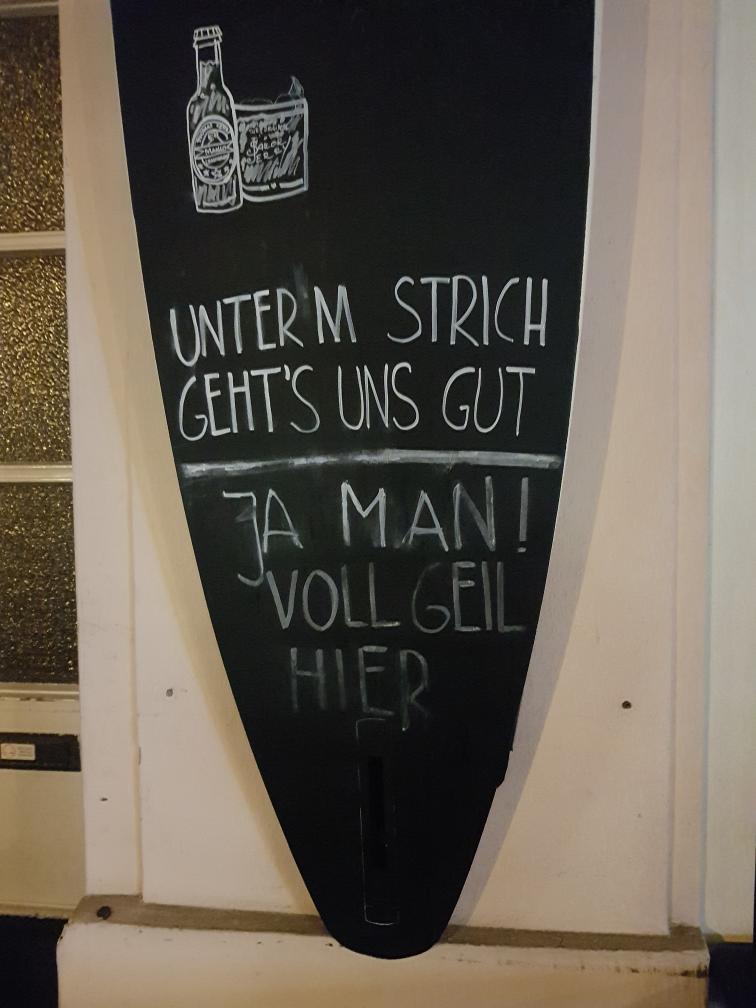 UNTERM STRICH
GEHT'S UNS GUT
JA MAN!
VOLL GEIL
HIER